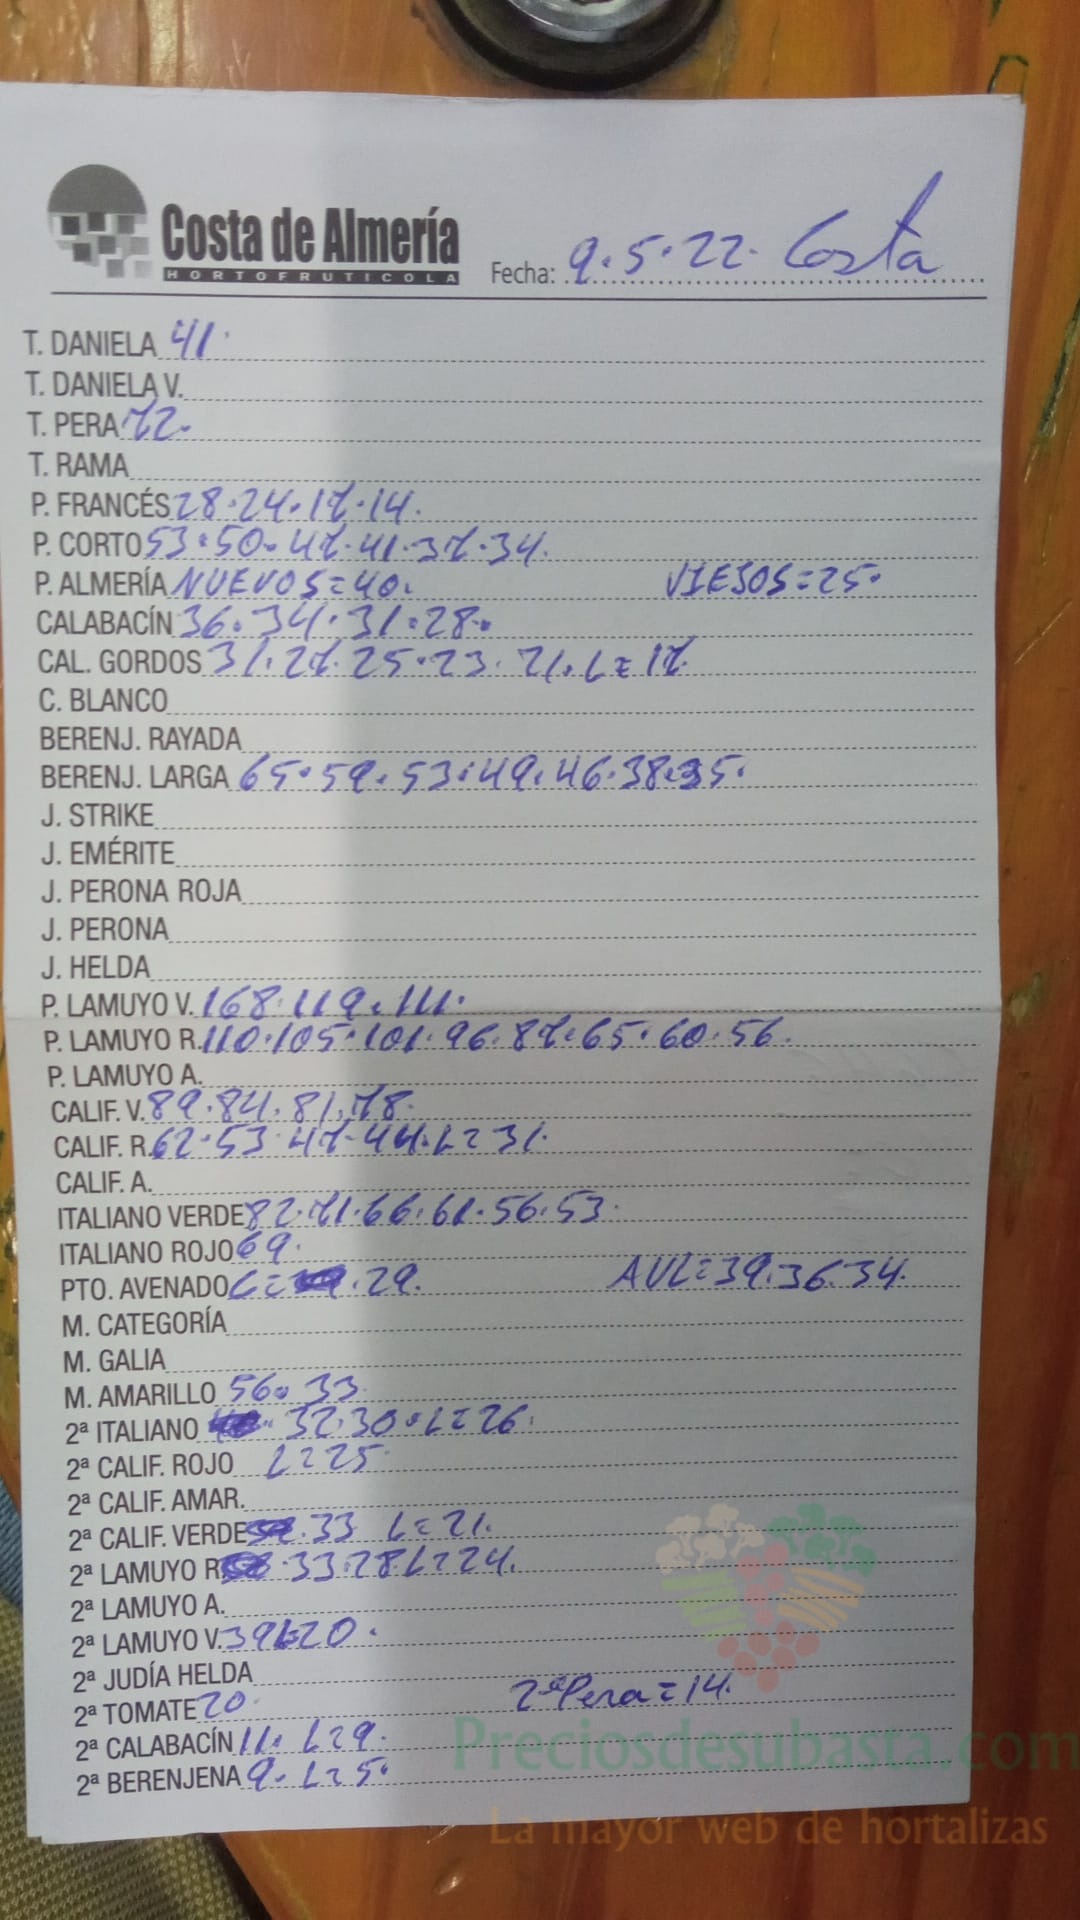 Costa de Almería
HORTOFRUTICOLA
Fecha: 9.5.22. Costa
T. DANIELA 41.
T. DANIELA V.
T. PERA 72.
T. RAMA
P. FRANCÉS 28.24.17.14.
P. CORTO 53.50.47.41.37.34.
P. ALMERÍA NUEVOS=40. VIEJOS=25.
CALABACÍN 36.34.31.28.
CAL. GORDOS 31.27.25.23.21.L=17.
C. BLANCO
BERENJ. RAYADA
BERENJ. LARGA 65.59.53.49.46.38.35.
J. STRIKE
J. EMÉRITE
J. PERONA ROJA
J. PERONA
J. HELDA
P. LAMUYO V. 168.119.111.
P. LAMUYO R. 110.105.101.96.87.65.60.56.
P. LAMUYO A.
CALIF. V. 89.84.81.78.
CALIF. R. 62.53.47.44.L=31.
CALIF. A.
ITALIANO VERDE 82.71.66.61.56.53.
ITALIANO ROJO 69.
PTO. AVENADO L= .29. AUL=39.36.34.
M. CATEGORÍA
M. GALIA
M. AMARILLO 56.33.
2ª ITALIANO 32.30.L=26.
2ª CALIF. ROJO L=25.
2ª CALIF. AMAR.
2ª CALIF. VERDE .33 L=21.
2ª LAMUYO R. .33.28L=24.
2ª LAMUYO A.
2ª LAMUYO V. 39L=20.
2ª JUDÍA HELDA
2ª TOMATE 20. 2ªPera=14.
2ª CALABACÍN 11. L=9.
2ª BERENJENA 9. L=5.
Preciosdesubasta.com
La mayor web de hortalizas